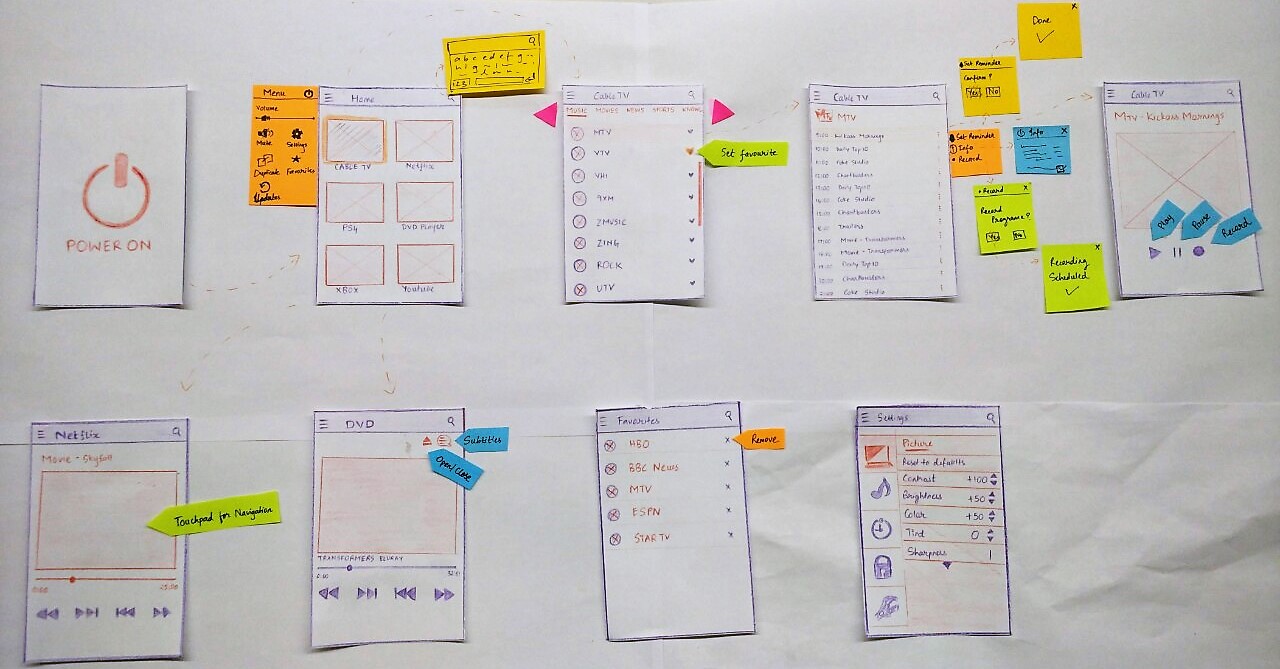 POWER ON
Menu
Volume
Mute
Settings
Duplicate
Favorites
Updates
Home
CABLE TV
Netflix
PS4
DVD Player
XBOX
Youtube
123
Cable TV
MUSIC MOVIES NEWS SPORTS
MTV
VTV
VH1
9XM
ZMUSIC
ZING
ROCK
UTV
Set favourite
Cable TV
MTV
9:00 Kickass Mornings
10:00 Daily Top 10
11:00 Coke Studio
12:00 Chartbusters
13:00 Daily Top 10
14:00 Coke Studio
15:00 Chartbusters
16:00 Trailers
17:00 Movie - Transformers
Movie - Transformers
Daily Top 10
Chartbusters
Coke Studio
Set Reminder
Info
Record
Set Reminder
Confirm?
Yes No
Done
Info
Record
Record
Programe?
Yes No
Recording
Scheduled
Cable TV
MTV - Kickass Mornings
Play
Pause
Record
Netflix
Movie - Skyfall
Touchpad for Navigation
0:00
DVD
Subtitles
Open/Close
TRANSFORMERS BLURAY
0:00
Favorites
HBO
BBC News
MTV
ESPN
STAR TV
Remove
Settings
Picture
Reset to defaults
Contrast +100
Brightness +50
Color +50
Tint 0
Sharpness 1